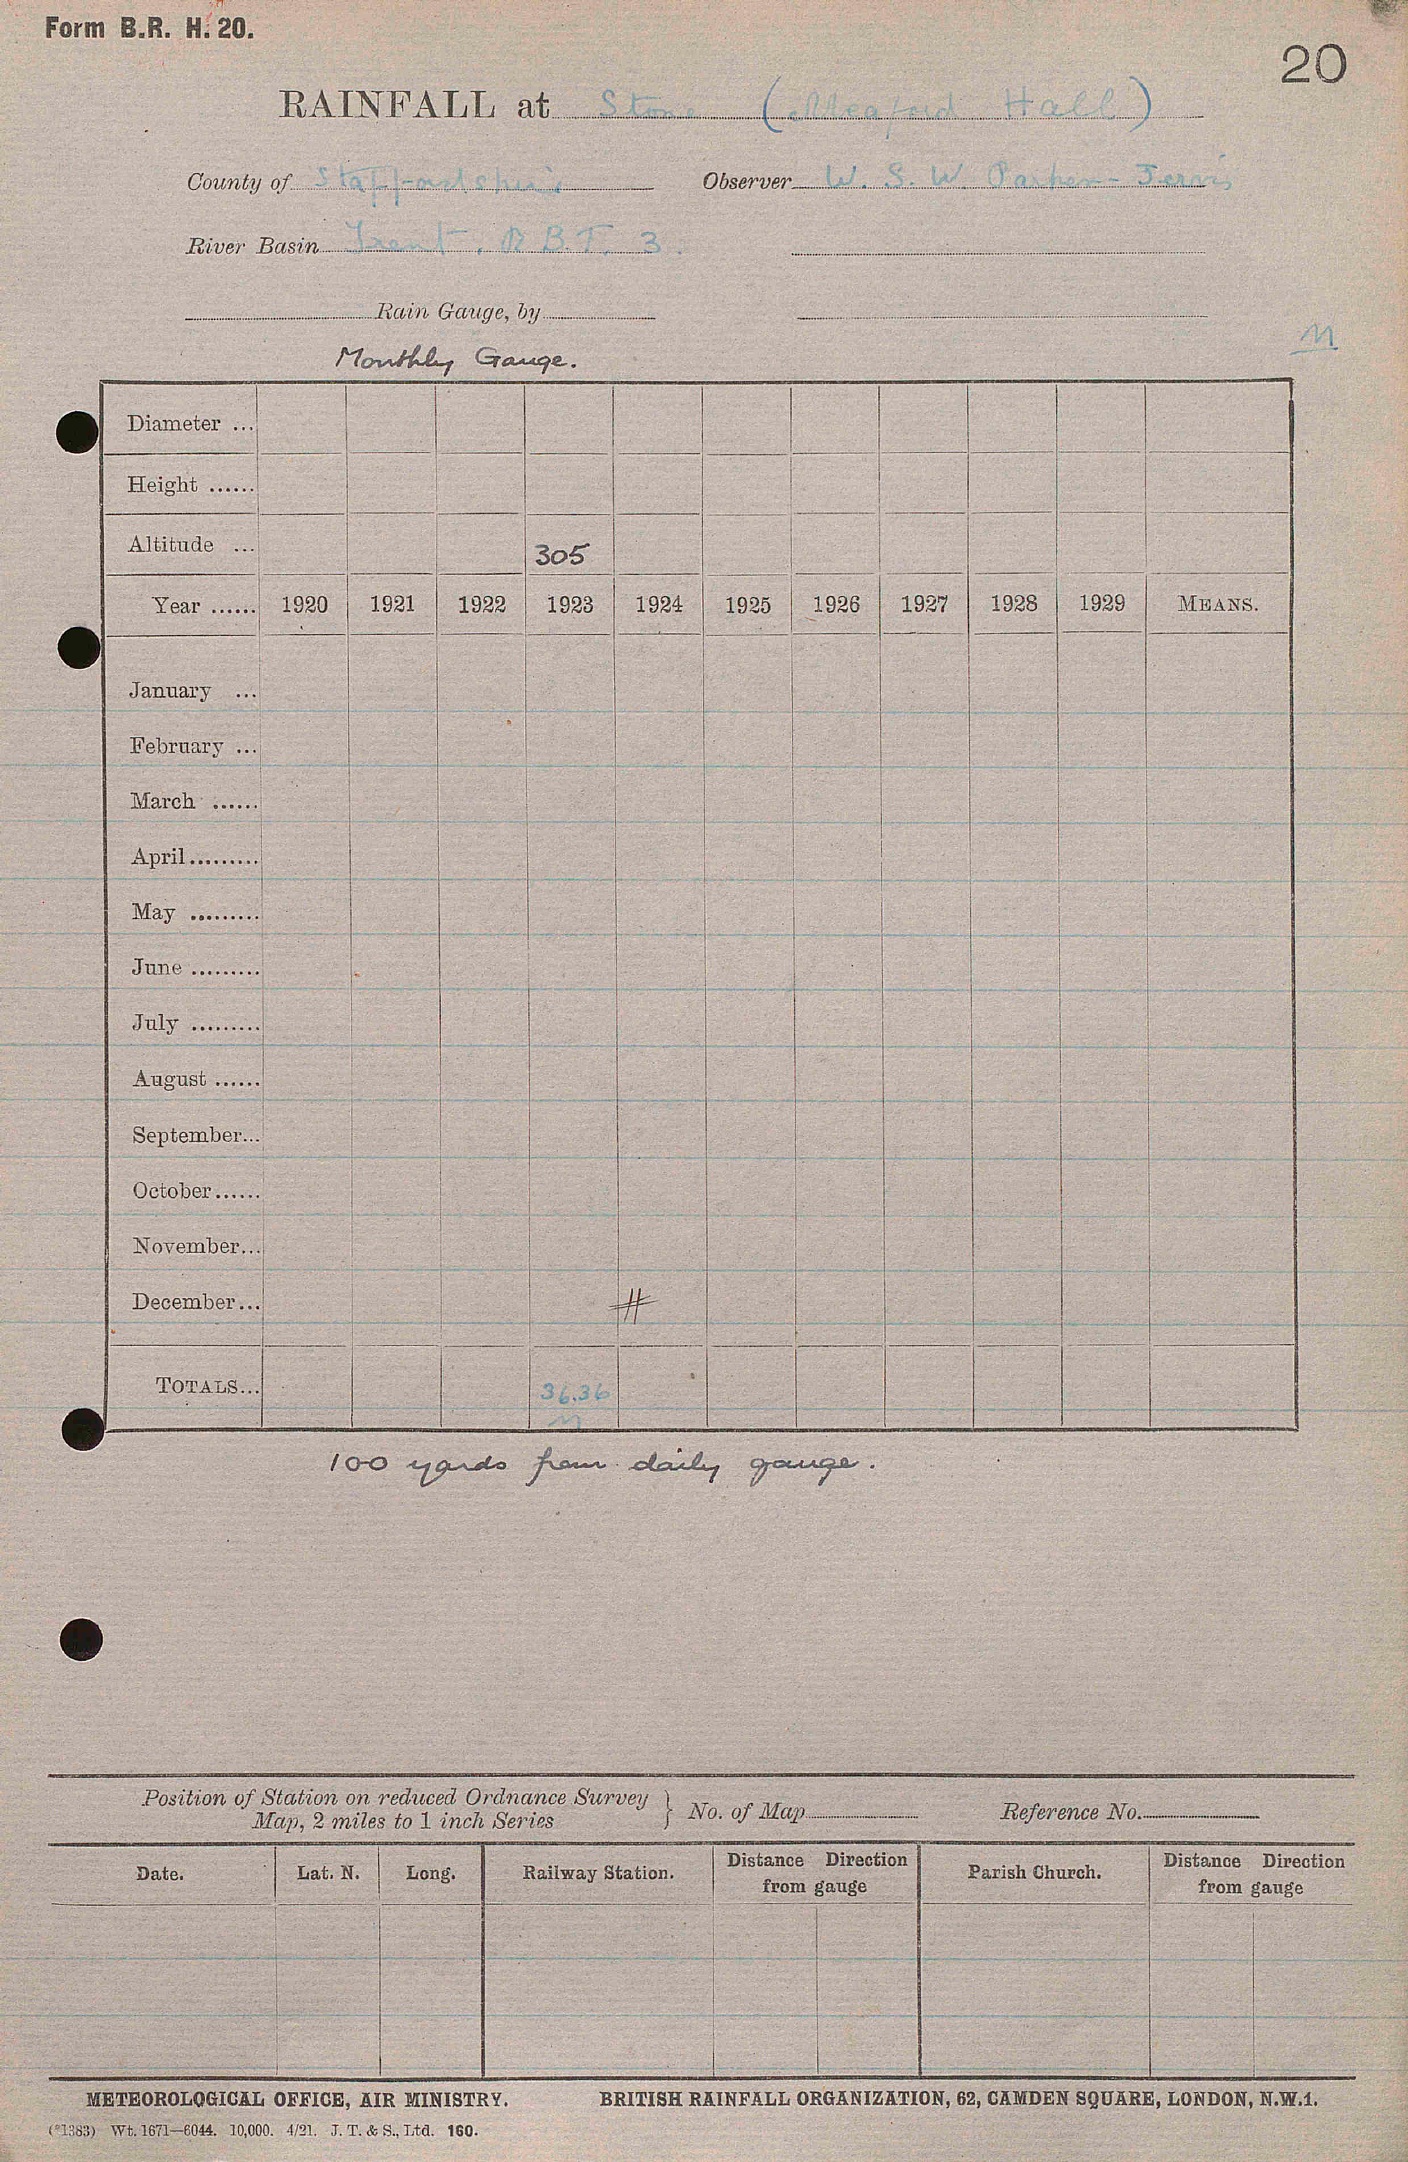 Form B.R. H. 20.
20
RAINFALL at Stone (Meaford Hall)
County of Staffordshire Observer W. S. W. Parker-Jervis
River Basin Trent. R B T. 3.
Rain Gauge, by
M
Monthly Gauge.
Diameter ...
Height ......
Altitude ... 305
Year ...... 1920 1921 1922 1923 1924 1925 1926 1927 1928 1929 MEANS.
January ...
February ...
March ......
April.........
May .........
June .........
July .........
August ......
September...
October......
November...
December... #
TOTALS... 36.36
M
100 yards from daily gauge.
Position of Station on reduced Ordnance Survey
Map, 2 miles to 1 inch Series } No. of Map Reference No.
Date. Lat. N. Long. Railway Station. Distance Direction from gauge Parish Church. Distance Direction from gauge
METEOROLOGICAL OFFICE, AIR MINISTRY. BRITISH RAINFALL ORGANIZATION, 62, CAMDEN SQUARE, LONDON, N.W.1.
(*1383) Wt. 1671—6044. 10,000. 4/21. J. T. & S., Ltd. 160.